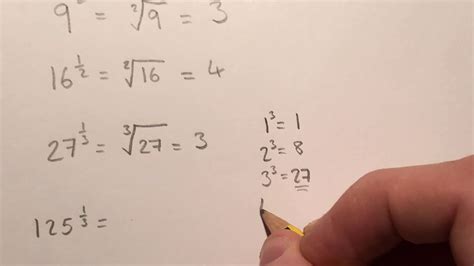 9 = ²√9 = 3
16^(1/2) = ²√16 = 4
27^(1/3) = ³√27 = 3
1³ = 1
2³ = 8
3³ = 27
125^(1/3) =